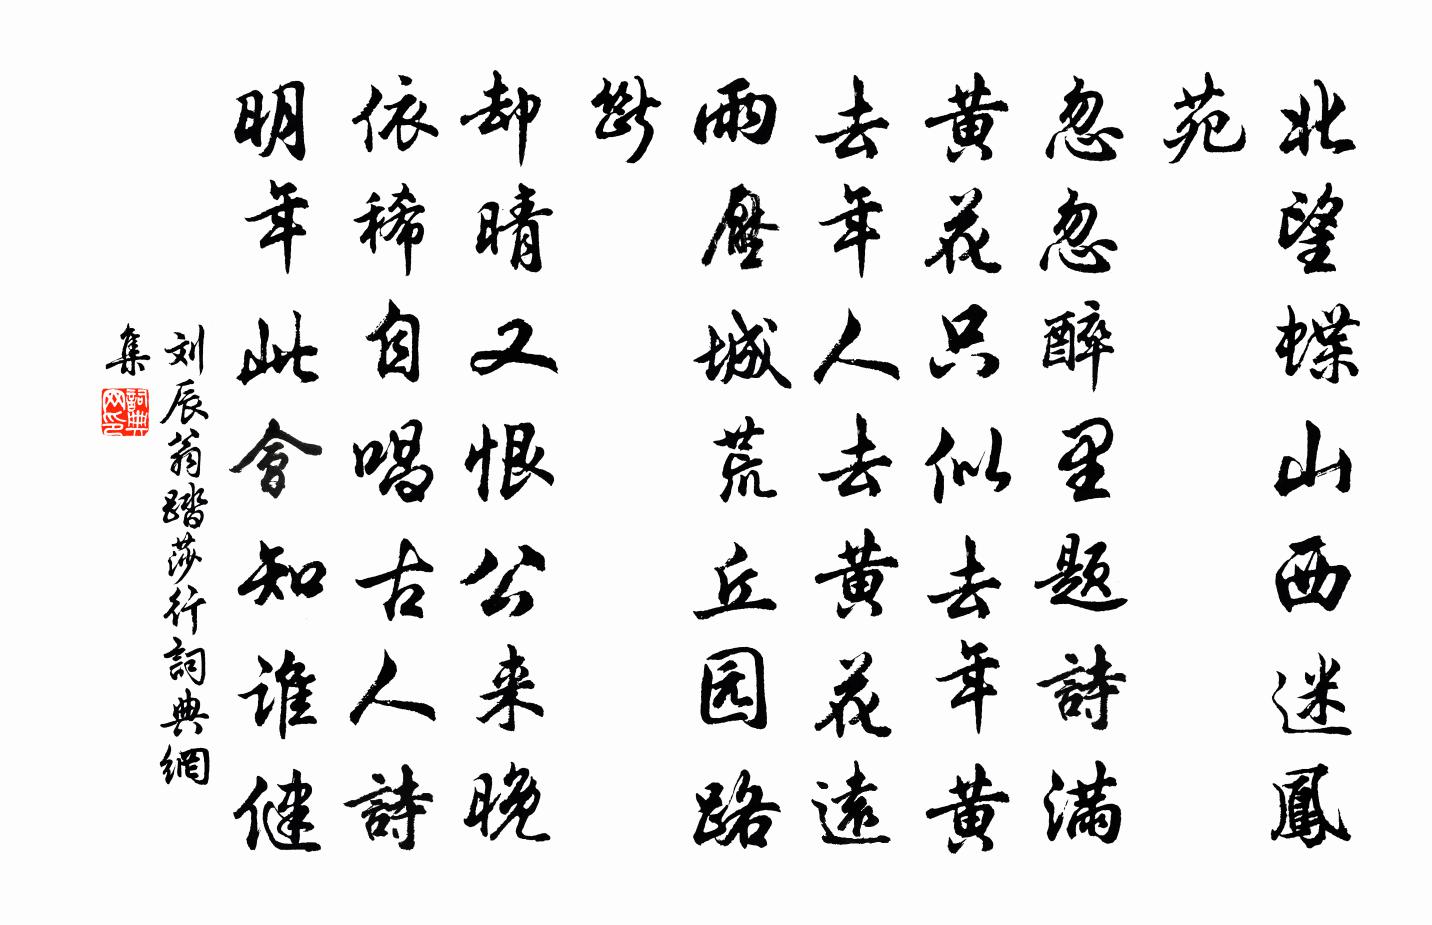 北望蝶山西迷鳳
苑
忽忽醉里題詩满
黄花只似去年黄
去年人去黄花遠
雨壓城荒丘园路
斷
却晴又恨公来晚
依稀自唱古人詩
明年此會知谁健
刘辰翁踏莎行詞典網
集
詞典網印